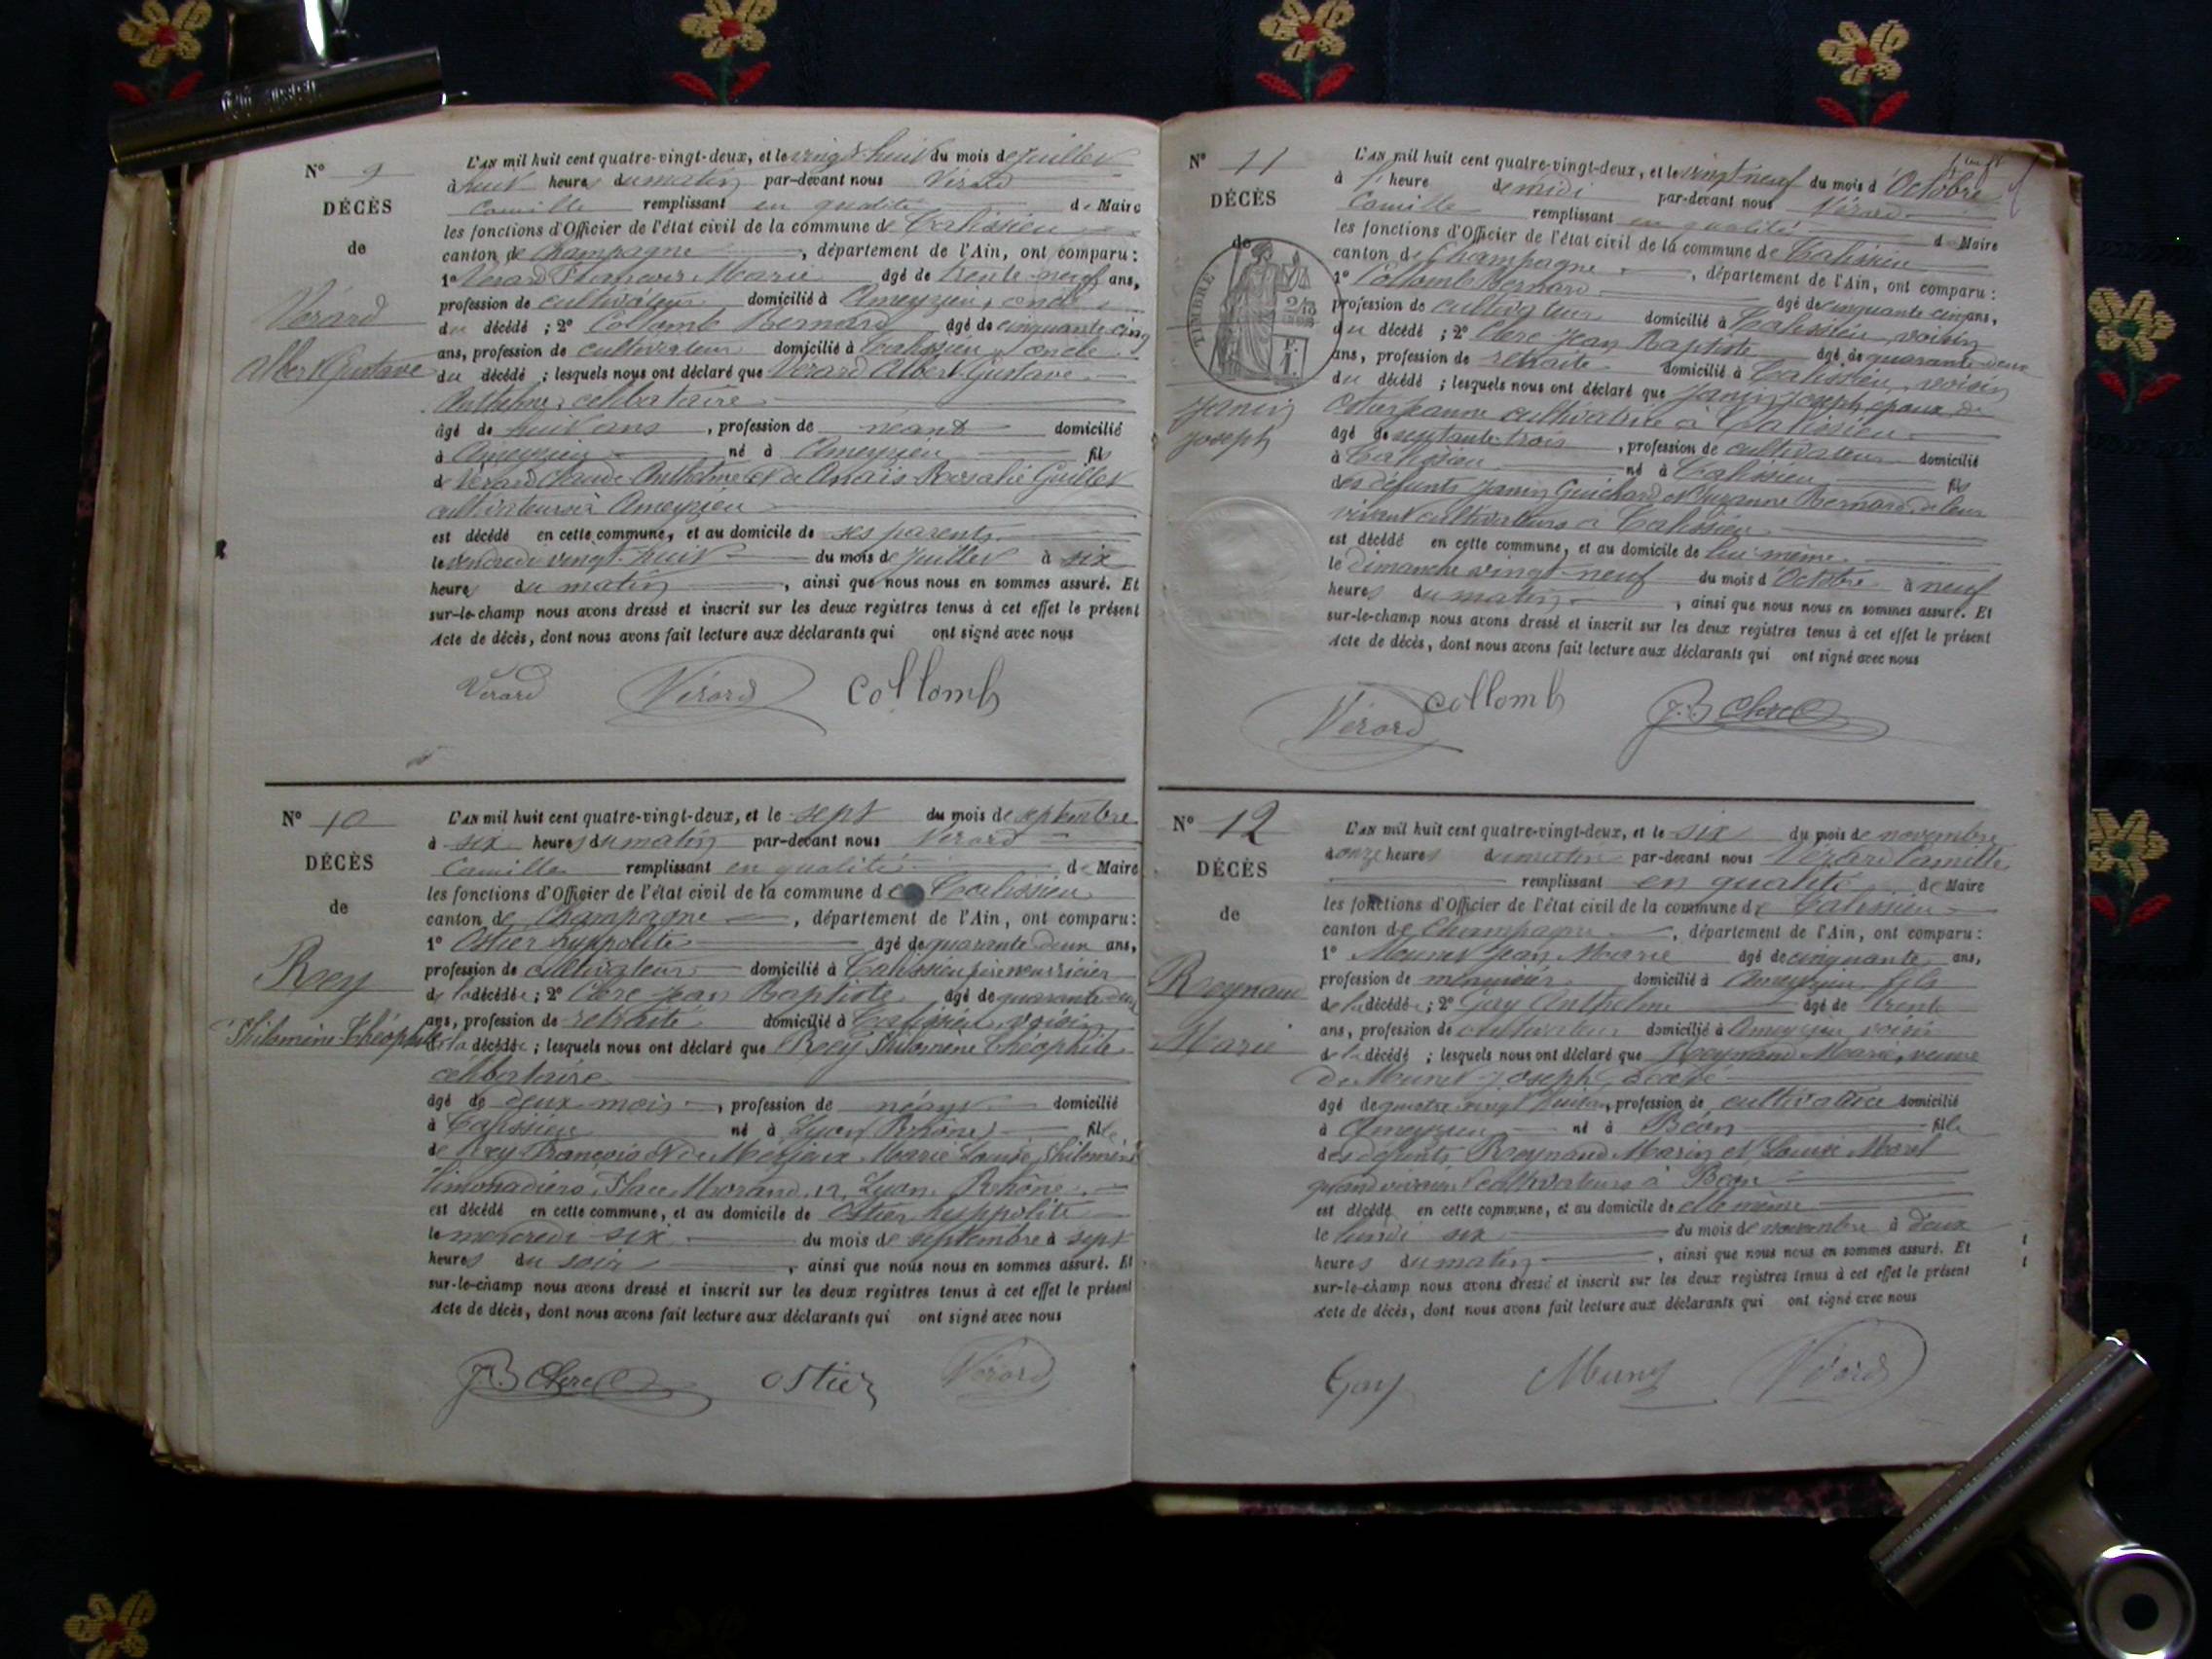 N° 9
DÉCÈS
de
Vérard
Albert Gustave
L'AN mil huit cent quatre-vingt-deux, et le vingt-huit du mois de Juillet
à huit heures du matin par-devant nous Vérard
Camille remplissant en qualité de Maire
les fonctions d'Officier de l'état civil de la commune de Talissieu
canton de Champagne, département de l'Ain, ont comparu:
1° Vérard François Marie âgé de trente-neuf ans,
profession de cultivateur domicilié à Ameyzieu, oncle
du décédé; 2° Collomb Bernard âgé de cinquante cinq
ans, profession de cultivateur domicilié à Talissieu, oncle
du décédé; lesquels nous ont déclaré que Vérard Albert Gustave
Anthelme, célibataire
âgé de huit ans, profession de néant domicilié
à Ameyzieu né à Ameyzieu fils
de Vérard Claude Anthelme et de Anaïs Rosalie Guillet
cultivateurs à Ameyzieu
est décédé en cette commune, et au domicile de ses parents
le vendredi vingt-huit du mois de Juillet à six
heures du matin, ainsi que nous nous en sommes assuré. Et
sur-le-champ nous avons dressé et inscrit sur les deux registres tenus à cet effet le présent
Acte de décès, dont nous avons fait lecture aux déclarants qui ont signé avec nous
Vérard Vérard Collomb
N° 10
DÉCÈS
de
Rey
Philomène Théophile
L'AN mil huit cent quatre-vingt-deux, et le sept du mois de septembre
à six heures du matin par-devant nous Vérard
Camille remplissant en qualité de Maire
les fonctions d'Officier de l'état civil de la commune de Talissieu
canton de Champagne, département de l'Ain, ont comparu:
1° Ostier hyppolite âgé de quarante deux ans,
profession de cultivateur domicilié à Talissieu père nourricier
de la décédée; 2° Clerc Jean Baptiste âgé de quarante deux
ans, profession de retraité domicilié à Talissieu, voisin
de la décédée; lesquels nous ont déclaré que Rey Philomène Théophile
célibataire
âgé de deux mois, profession de néant domicilié
à Talissieu né à Lyon (Rhône) fille
de Rey François et de Marie Louise Philomène
limonadiers, Place Morand, 12, Lyon, Rhône
est décédé en cette commune, et au domicile de Ostier hyppolite
le mercredi six du mois de septembre à sept
heures du soir, ainsi que nous nous en sommes assuré. Et
sur-le-champ nous avons dressé et inscrit sur les deux registres tenus à cet effet le présent
Acte de décès, dont nous avons fait lecture aux déclarants qui ont signé avec nous
J. B Clerc ostier Vérard
N° 11
DÉCÈS
de
TIMBRE
Janin
Joseph
L'AN mil huit cent quatre-vingt-deux, et le vingt neuf du mois d'Octobre
à heure de midi par-devant nous Vérard
Camille remplissant en qualité de Maire
les fonctions d'Officier de l'état civil de la commune de Talissieu
canton de Champagne, département de l'Ain, ont comparu:
1° Collomb Bernard âgé de cinquante cinq ans,
profession de cultivateur domicilié à Talissieu, voisin
du décédé; 2° Clerc Jean Baptiste âgé de quarante-deux
ans, profession de retraité domicilié à Talissieu, voisin
du décédé; lesquels nous ont déclaré que Janin Joseph, époux de
Ostier Jeanne cultivatrice à Talissieu
âgé de septante-trois, profession de cultivateur domicilié
à Talissieu né à Talissieu fils
des défunts Janin Guichard et Suzanne Bernard, de leur
vivant cultivateurs à Talissieu
est décédé en cette commune, et au domicile de lui-même
le dimanche vingt-neuf du mois d'Octobre à neuf
heures du matin, ainsi que nous nous en sommes assuré. Et
sur-le-champ nous avons dressé et inscrit sur les deux registres tenus à cet effet le présent
Acte de décès, dont nous avons fait lecture aux déclarants qui ont signé avec nous
Vérard collomb J. B Clerc
N° 12
DÉCÈS
de
Reynaud
Marie
L'AN mil huit cent quatre-vingt-deux, et le six du mois de novembre
à onze heures du matin par-devant nous Vérard Camille
remplissant en qualité de Maire
les fonctions d'Officier de l'état civil de la commune de Talissieu
canton de Champagne, département de l'Ain, ont comparu:
1° Meunet Jean Marie âgé de cinquante ans,
profession de menuisier domicilié à Ameyzieu, fils
de la décédée; 2° Gay Anthelme âgé de trente
ans, profession de cultivateur domicilié à Ameyzieu voisin
de la décédé; lesquels nous ont déclaré que Reynaud Marie, veuve
de Meunet Joseph, décédé
âgé de quatre vingt ans, profession de cultivatrice domicilié
à Ameyzieu né à Béon fille
des défunts Reynaud Marin et Louise Morel
quand vivaient cultivateurs à Béon
est décédé en cette commune, et au domicile de elle même
le lundi six du mois de novembre à deux
heures du matin, ainsi que nous nous en sommes assuré. Et
sur-le-champ nous avons dressé et inscrit sur les deux registres tenus à cet effet le présent
Acte de décès, dont nous avons fait lecture aux déclarants qui ont signé avec nous
Gay Meunet Vérard